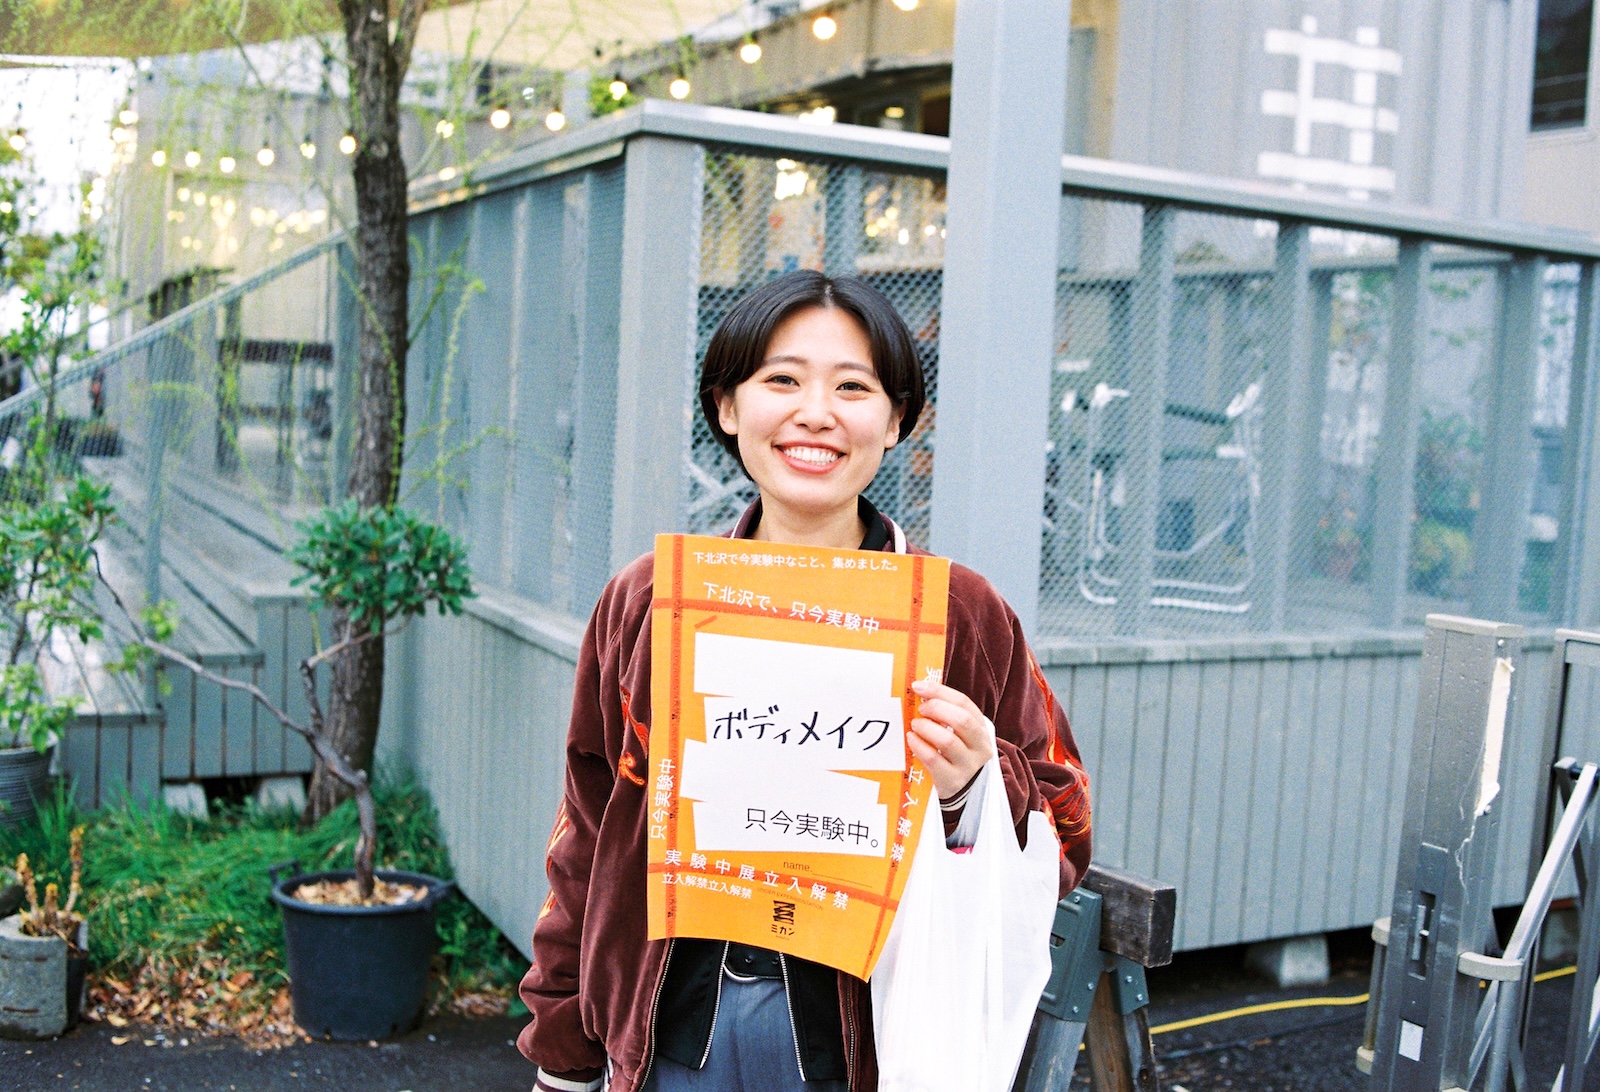 下北沢で今実験中なこと、集めました。
下北沢で、只今実験中
ボディメイク
只今実験中。
只今実験中
立入解禁
name
実験中展立入解禁
立入解禁立入解禁
ミカン